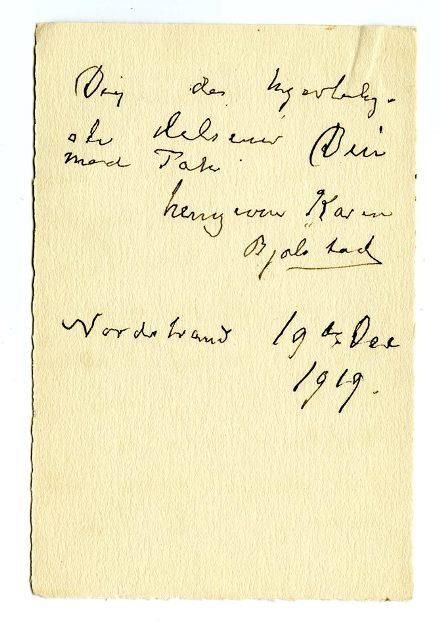 Dig de hjertelig-
ste Hilsener Din
med Tak
hengivne Karen
Bjølstad
Nordstrand 19de Dec
1919.